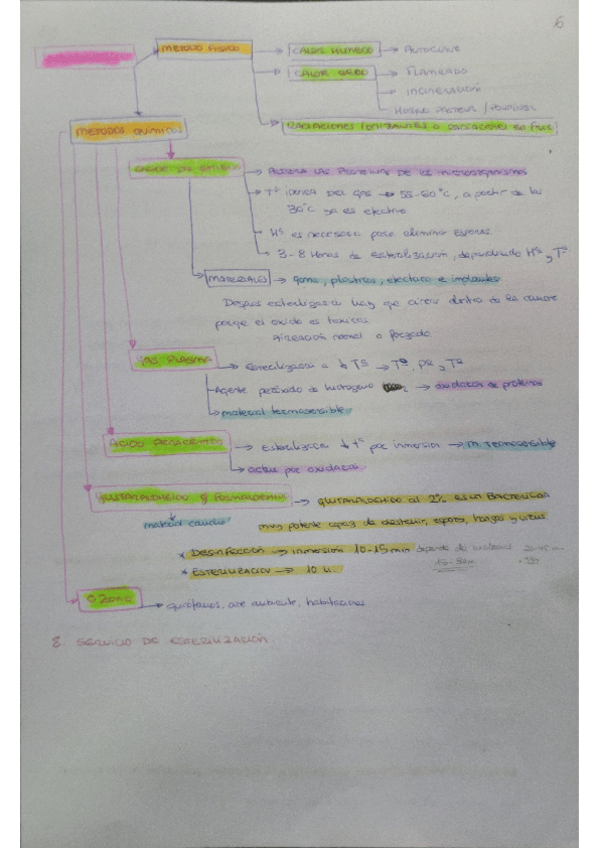 6
METODO FISICO
CALOR HUMEDO → AUTOCLAVE
CALOR SECO → FLAMEADO
INCINERACIÓN
HORNO PASTEUR / POUPINEL
RADIACIONES IONIZANTES o
METODOS QUIMICOS
OXIDO DE ETILENO → ALTERA LAS PROTEINAS DE LOS MICROORGANISMOS
Tª IDONEA DEL GAS → 55-60°C, a partir de los
30°C ya es efectivo
Hª es necesaria para eliminar esporas
3-8 Horas de esterilización, dependiendo Hª y Tª
MATERIALES → goma, plasticos, electrico e implantes
Despues esterilizar hay que airear dentro de la camara
porque el oxido es toxico.
AIREACIÓN normal o forzado
GAS PLASMA → Esterilización a ↓ Tª → Tª, PR, Tª
Agente peróxido de hidrogeno → oxidacion de proteinas
→ material termosensible
ACIDO PERACETICO → Esterilizacion ↓ tª por inmersion → M. TERMOSENSIBLE
→ actua por oxidacion
GLUTARALDEHIDO Y FORMALDEHIDO → GLUTARALDEHIDO al 2% es un BACTERICIDA
muy potente capaz de destruir, esporas, hongos y virus
* DESINFECCION → inmersión 10-15 min depende del material
* ESTERILIZACION → 10 H.
OZONO → quirofanos, aire ambiente, habitaciones
8. SERVICIO DE ESTERILIZACIÓN